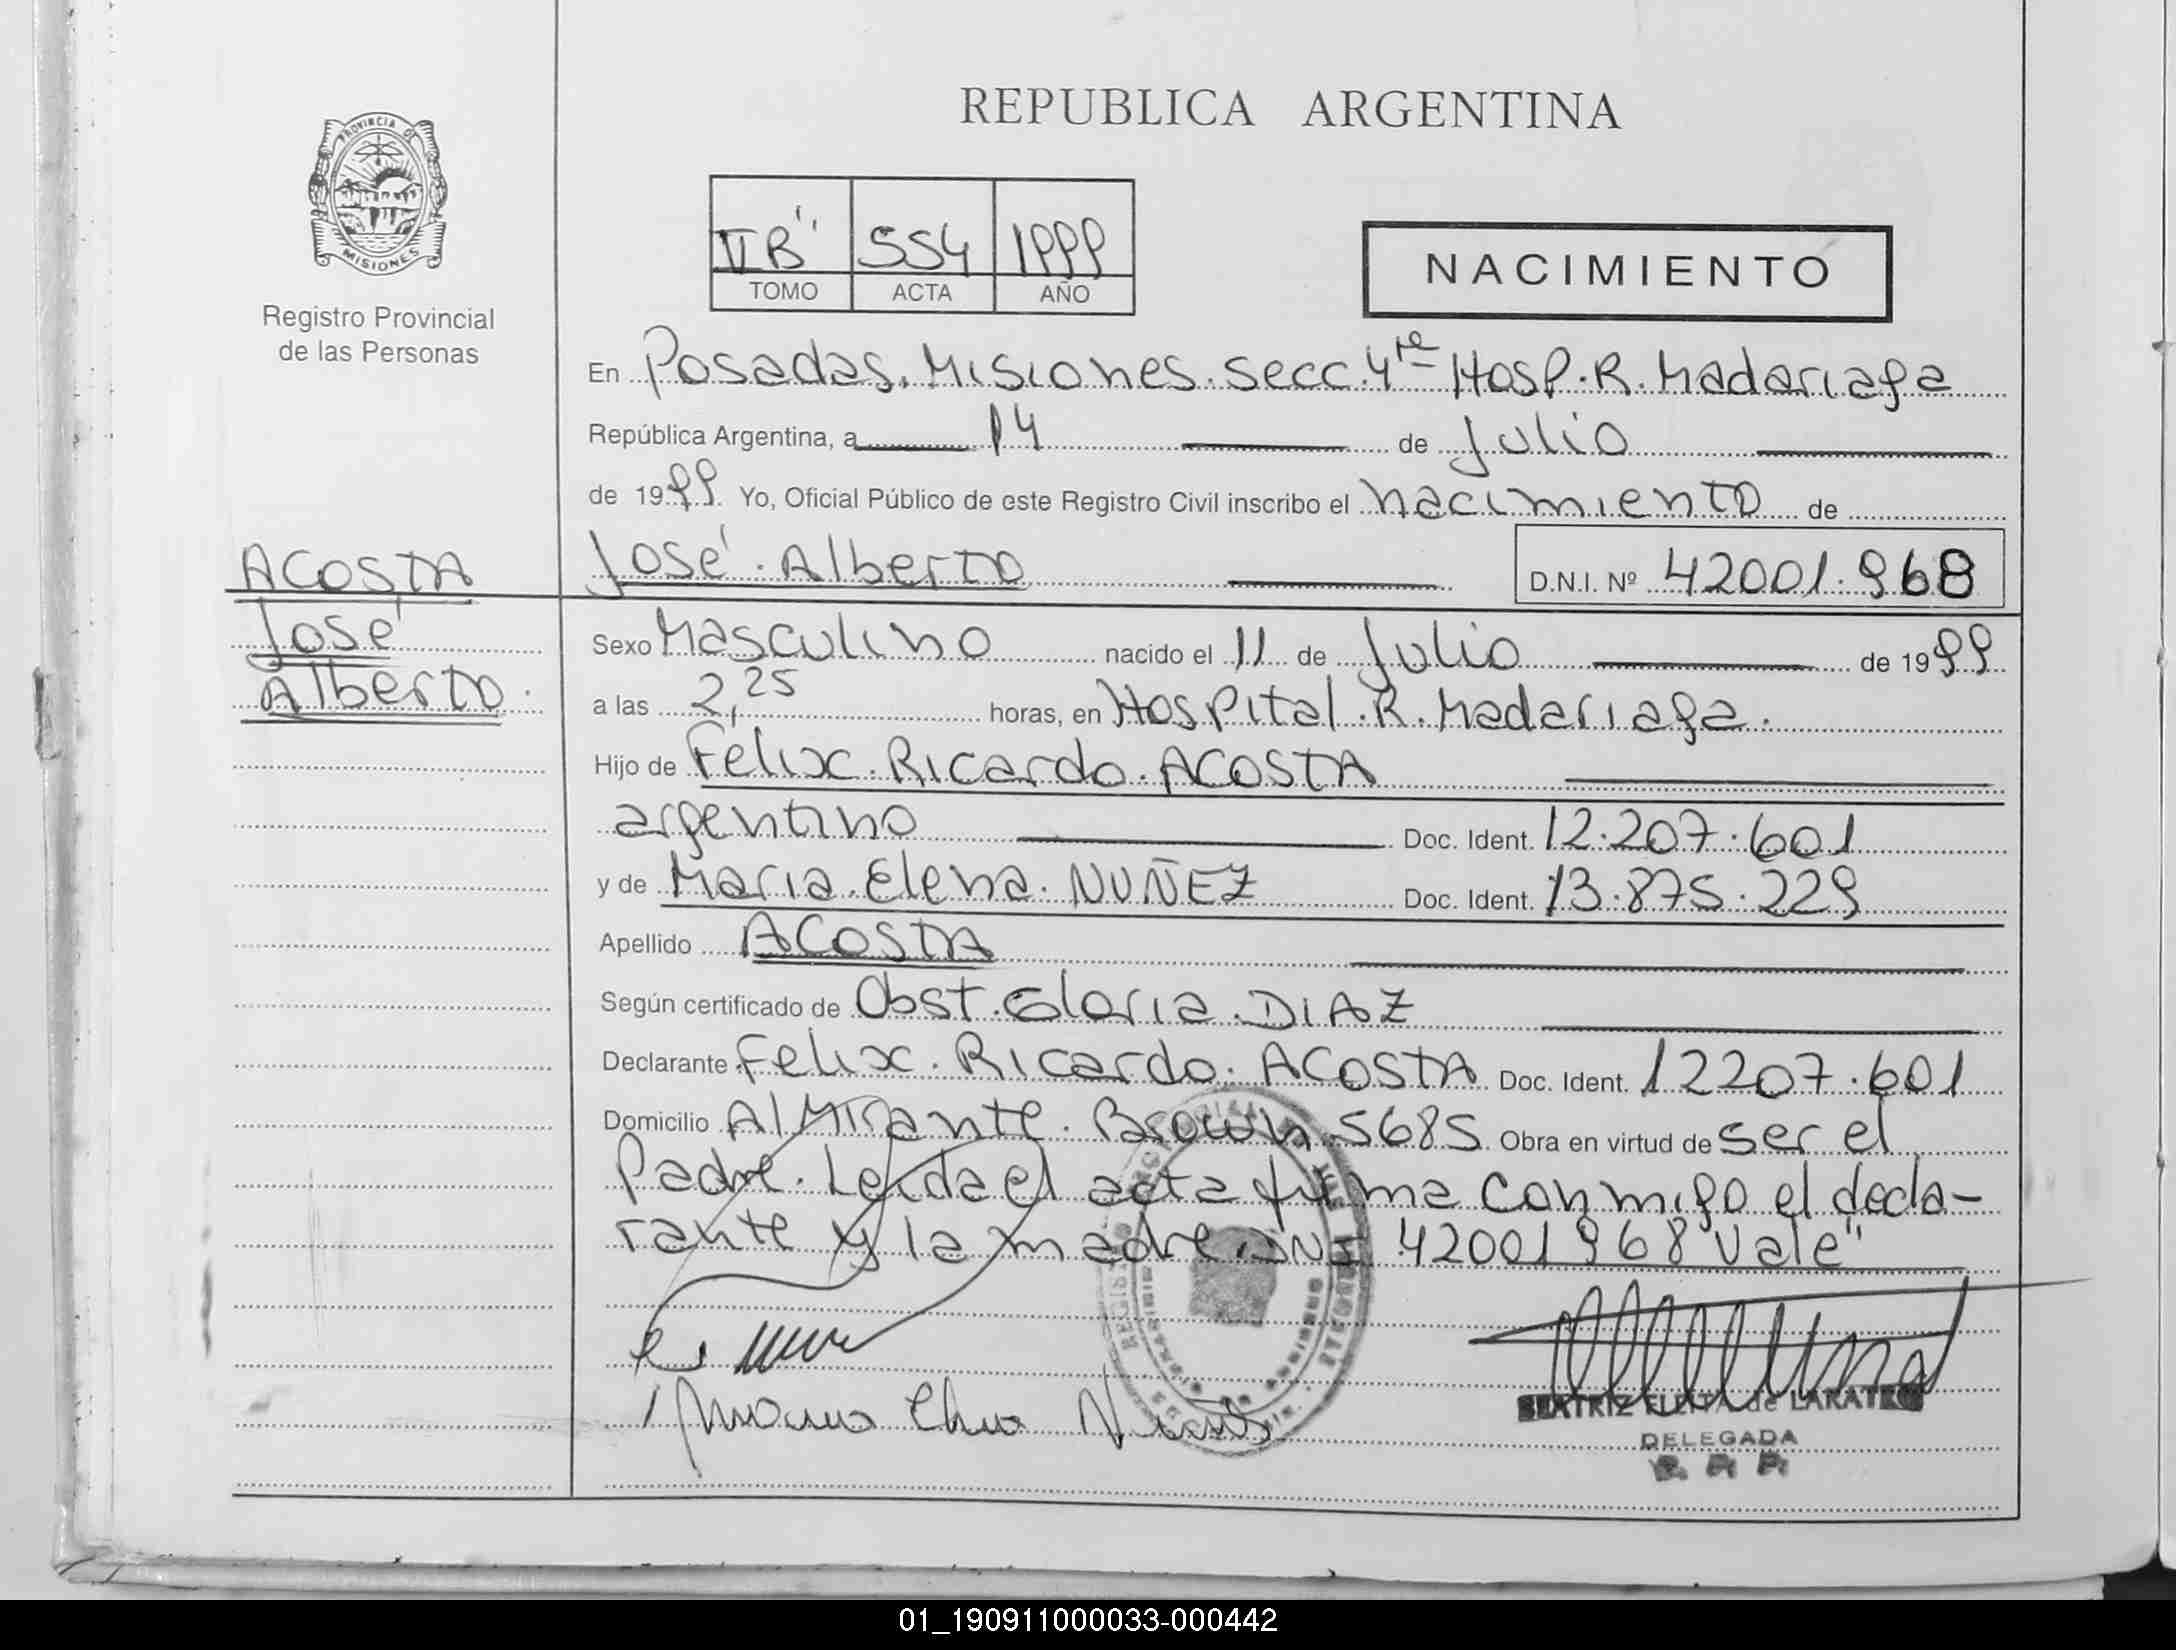 REPUBLICA ARGENTINA
PROVINCIA DE
MISIONES
Registro Provincial
de las Personas
"B" 554 1999
TOMO ACTA AÑO
NACIMIENTO
En Posadas. Misiones. secc. 4ta Hosp. R. Madariaga
República Argentina, a 14 de Julio
de 1999. Yo, Oficial Público de este Registro Civil inscribo el nacimiento de
José Alberto D.N.I. Nº 42001.968
ACOSTA
José
Alberto.
Sexo Masculino nacido el 11 de Julio de 1999
a las 2,25 horas, en Hospital R. Madariaga.
Hijo de Félix Ricardo ACOSTA
argentino Doc. Ident. 12.207.601
y de Maria Elena NUÑEZ Doc. Ident. 13.875.229
Apellido ACOSTA
Según certificado de Obst. Gloria DIAZ
Declarante Felix Ricardo ACOSTA Doc. Ident. 12207.601
Domicilio Almirante Brown 5685 Obra en virtud de ser el
Padre. Leida el acta firma conmigo el decla-
rante y la madre. DNI 42001968 "Vale"
BEATRIZ de
DELEGADA
01_190911000033-000442